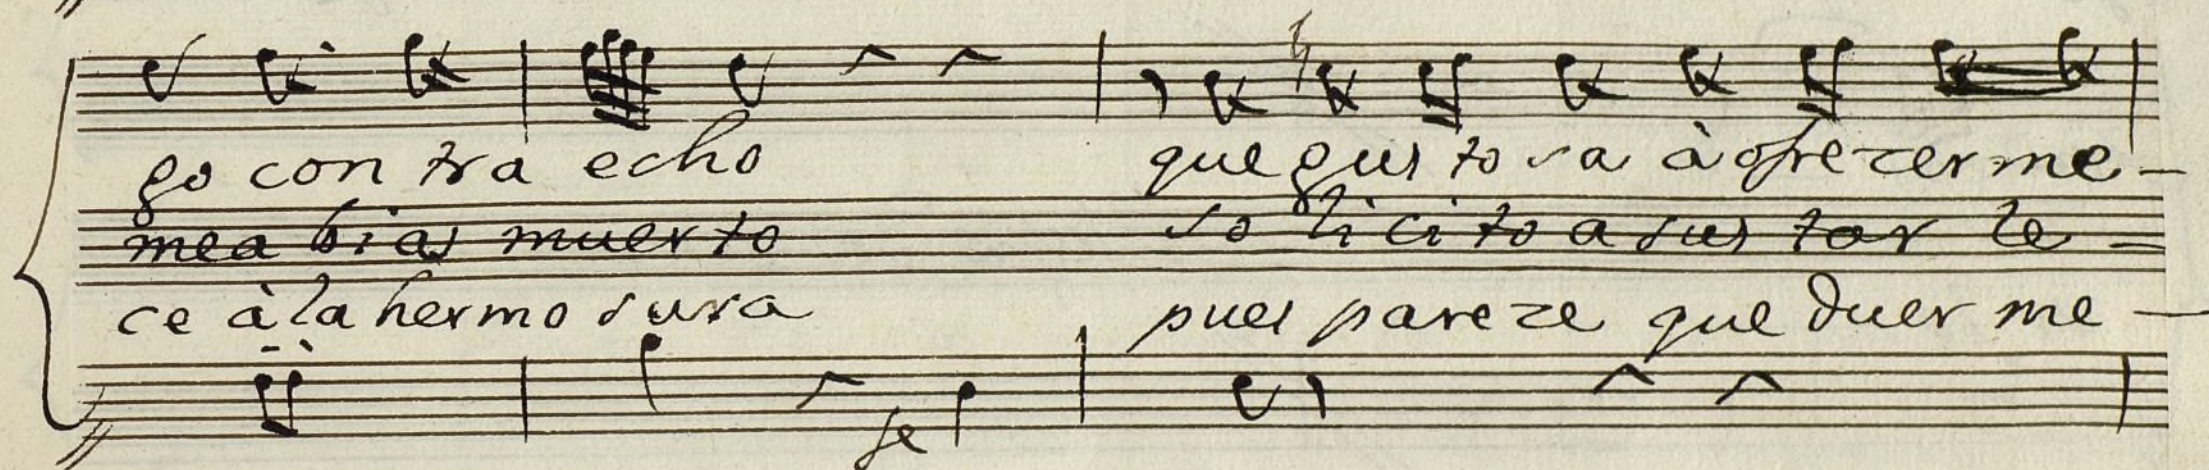 go con tra echo que gus to sa à ofre zer me -
mea bias muerto so li ci to a sus tar le -
ce à la hermo sura pues pareze que duer me -
fe